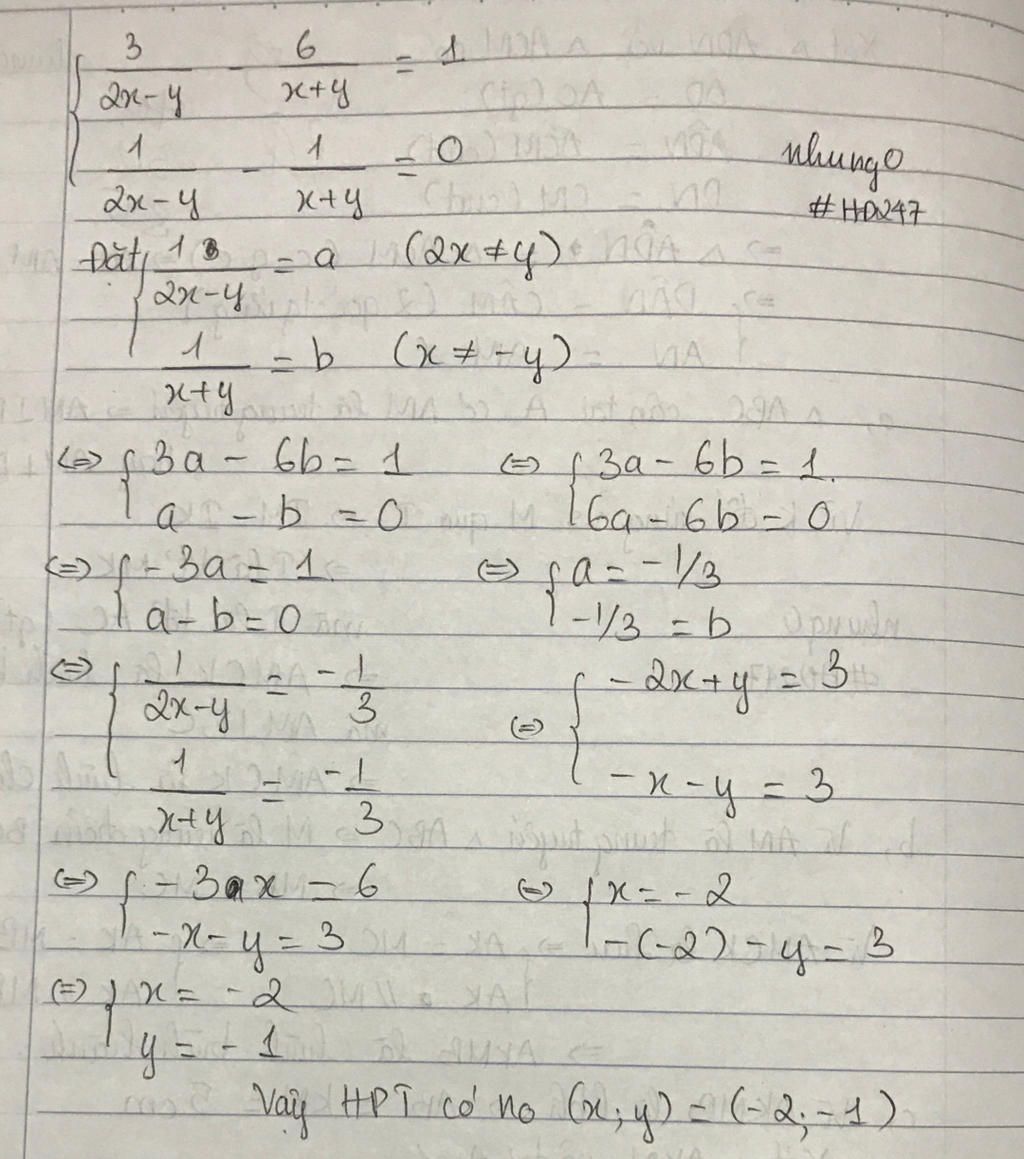 { 3/(2x-y) - 6/(x+y) = 1
{ 1/(2x-y) - 1/(x+y) = 0
nhung0
#HD247
Đặt { 1/(2x-y) = a (2x ≠ y)
{ 1/(x+y) = b (x ≠ -y)
<=> { 3a - 6b = 1 <=> { 3a - 6b = 1.
{ a - b = 0 { 6a - 6b = 0
<=> { -3a = 1 <=> { a = -1/3
{ a - b = 0 { -1/3 = b
<=> { 1/(2x-y) = -1/3 <=> { -2x+y = 3
{ 1/(x+y) = -1/3 { -x-y = 3
<=> { -3x = 6 <=> { x = -2
{ -x-y = 3 { -(-2)-y = 3
<=> { x = -2
{ y = -1
Vậy HPT có no (x;y) = (-2;-1)